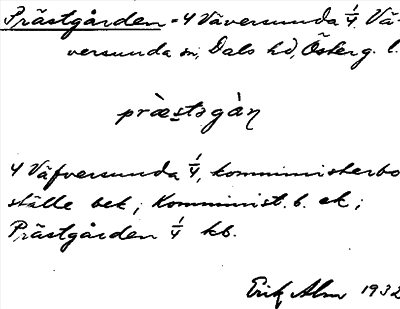 Prästgården = 4 Väversunda 1/4 Vä-
versunda sn, Dals hd, Österg. l.
præ̀stsgàṇ
4 Väfversunda 1/4, komministerbo
ställe bek; Komminist. b. ek;
Prästgården 1/4 kb.
Erik Alm 1932